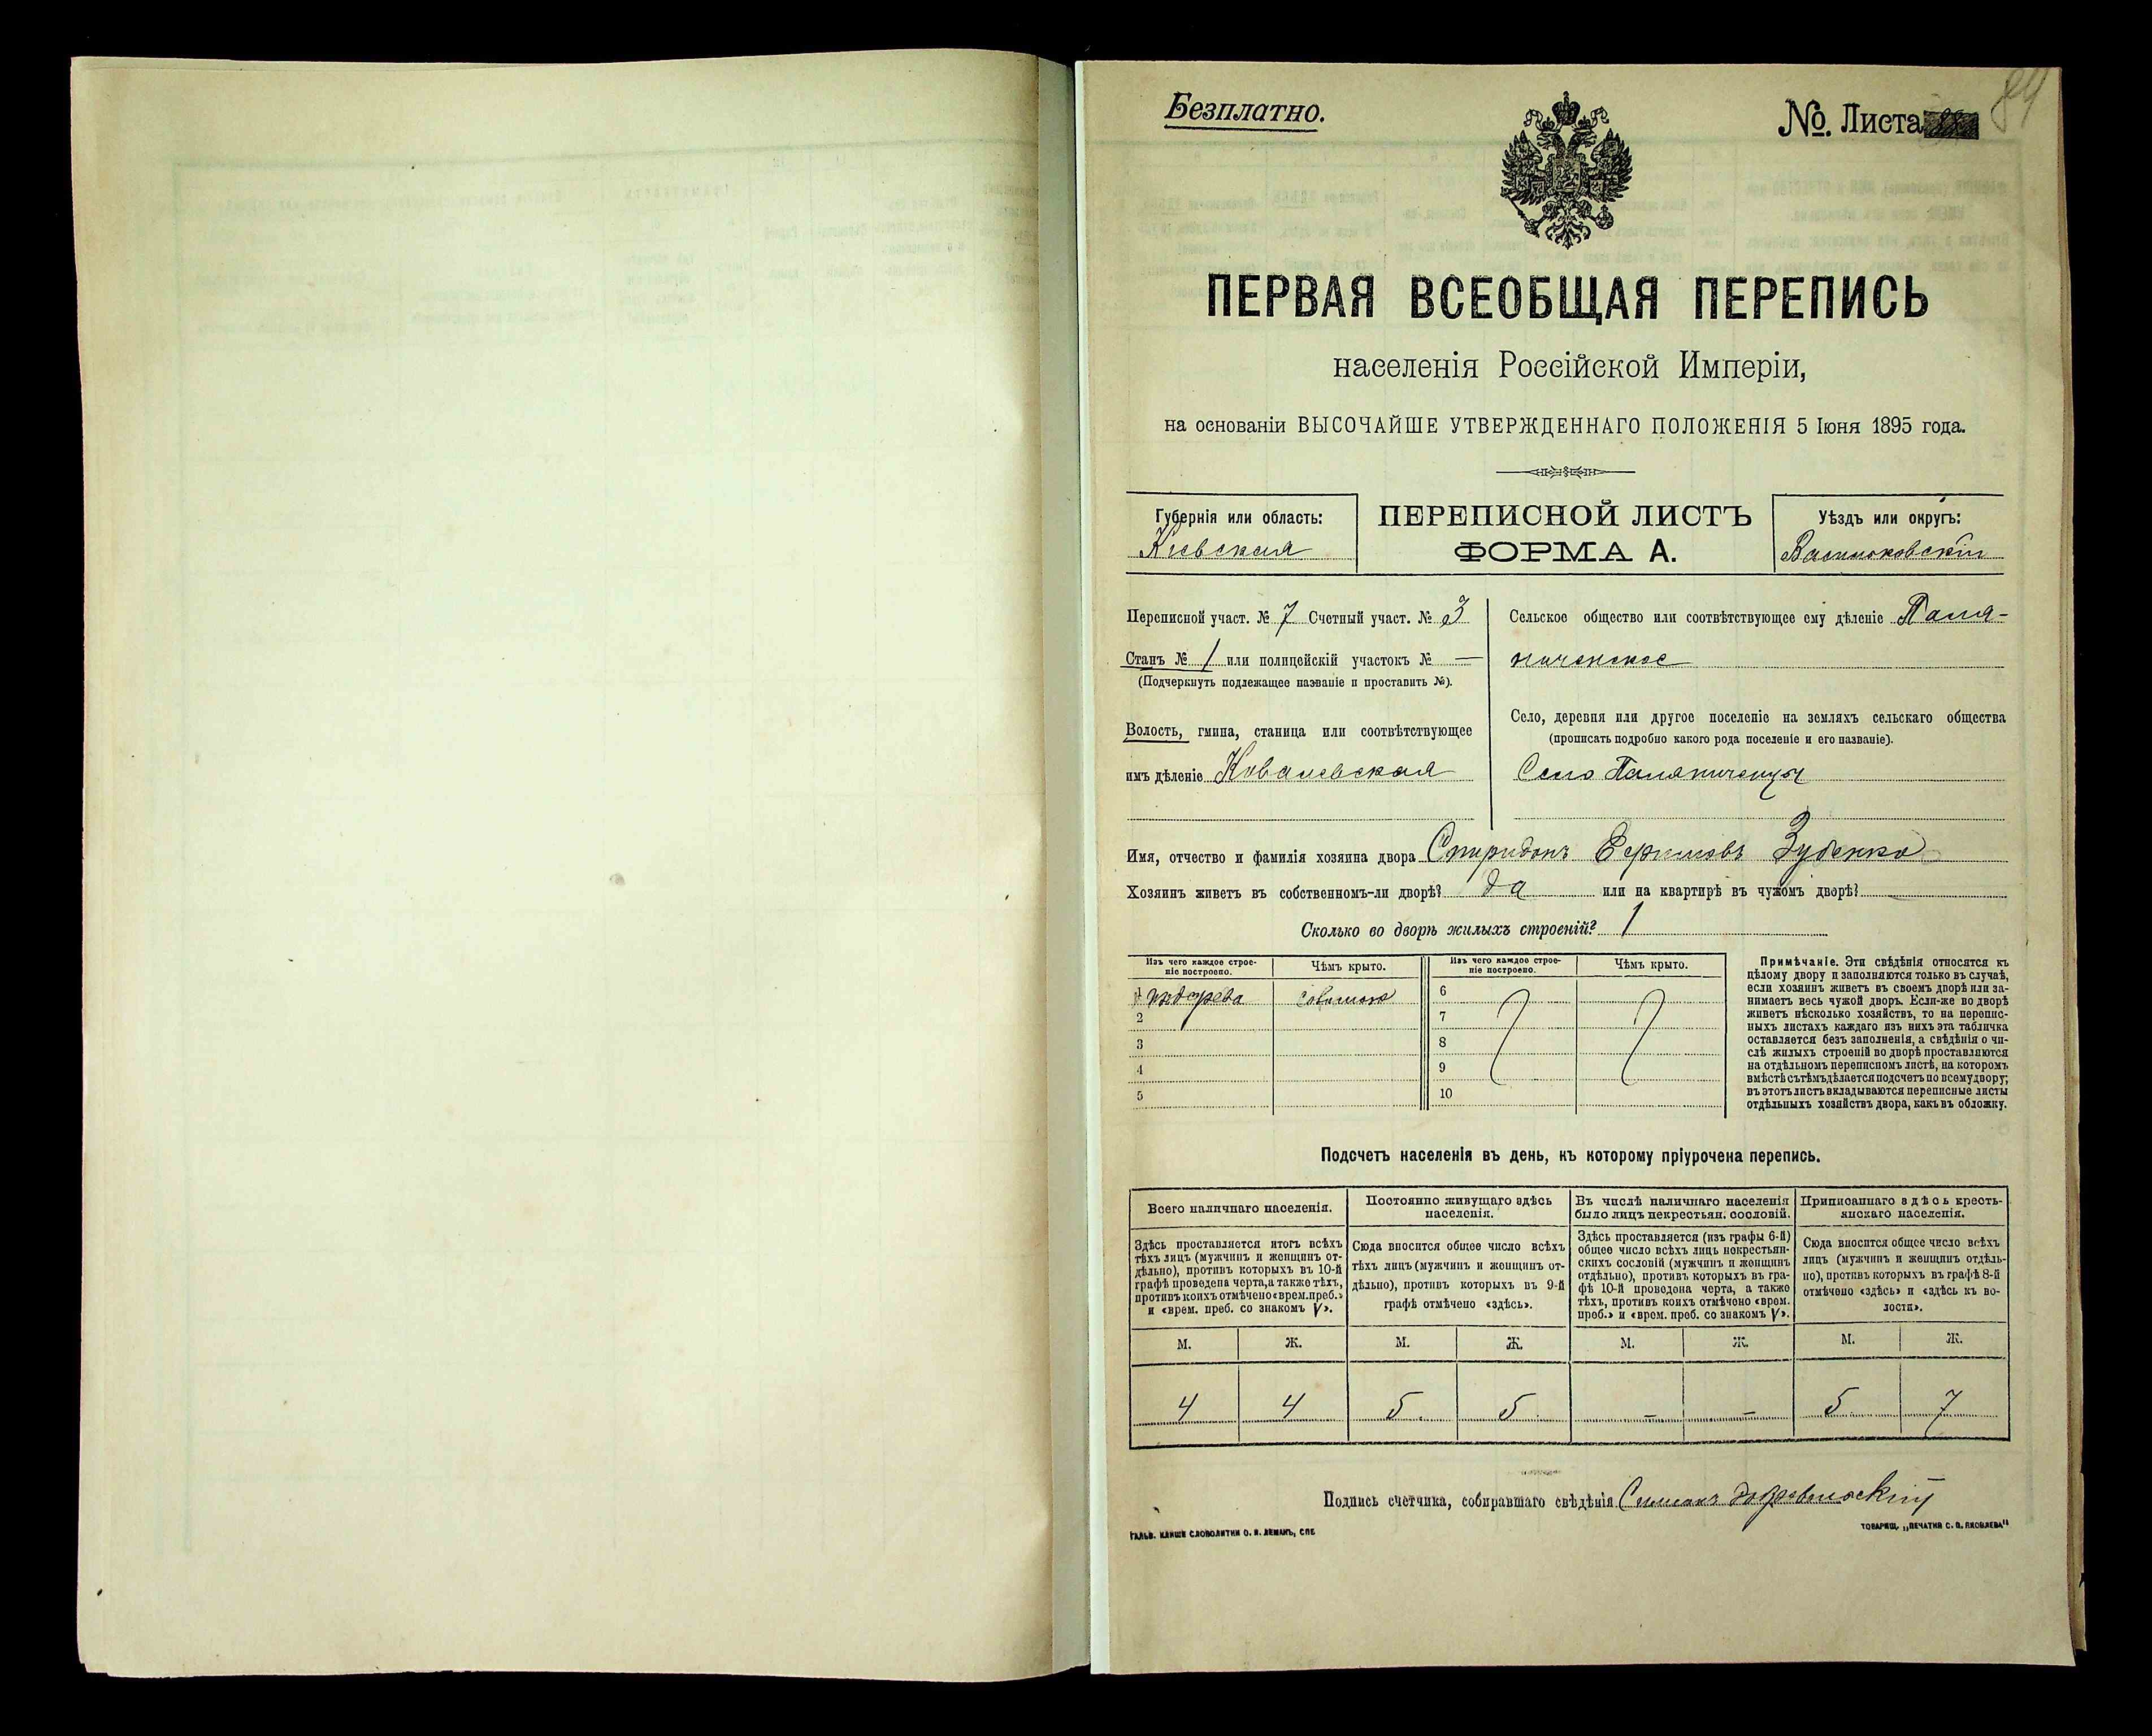 Безплатно.
№. Листа
84
ПЕРВАЯ ВСЕОБЩАЯ ПЕРЕПИСЬ
населенія Россійской Имперіи,
на основаніи ВЫСОЧАЙШЕ УТВЕРЖДЕННАГО ПОЛОЖЕНІЯ 5 Іюня 1895 года.
Губернія или область:
Кіевская
ПЕРЕПИСНОЙ ЛИСТЪ
ФОРМА А.
Уѣздъ или округъ:
Васильковскій
Переписной участ. № 7 Счетный участ. № 3
Станъ № 1 или полицейскій участокъ № —
(Подчеркнуть подлежащее названіе и проставить №).
Волость, гмина, станица или соотвѣтствующее
имъ дѣленіе Ковалевская
Сельское общество или соотвѣтствующее ему дѣленіе Паля-
ниченское
Село, деревня или другое поселеніе на земляхъ сельскаго общества
(прописать подробно какого рода поселеніе и его названіе).
Село Паляниченцы
Имя, отчество и фамилія хозяина двора Спиридонъ Зубенко
Хозяинъ живетъ въ собственномъ-ли дворѣ? да или на квартирѣ въ чужомъ дворѣ?
Сколько во дворѣ жилыхъ строеній? 1
Изъ чего каждое строе-
ніе построено.
Чѣмъ крыто.
Изъ чего каждое строе-
ніе построено.
Чѣмъ крыто.
1 изъ дерева соломою
2
3
4
5
6
7
8
9
10
Примѣчаніе. Эти свѣдѣнія относятся къ
цѣлому двору и заполняются только въ случаѣ,
если хозяинъ живетъ въ своемъ дворѣ или за-
нимаетъ весь чужой дворъ. Если-же во дворѣ
живетъ нѣсколько хозяйствъ, то на перепис-
ныхъ листахъ каждаго изъ нихъ эта табличка
оставляется безъ заполненія, а свѣдѣнія о чи-
слѣ жилыхъ строеній во дворѣ проставляются
на отдѣльномъ переписномъ листѣ, на которомъ
вмѣстѣ съ тѣмъ дѣлается подсчетъ по всему двору;
въ этотъ листъ вкладываются переписные листы
отдѣльныхъ хозяйствъ двора, какъ въ обложку.
Подсчетъ населенія въ день, къ которому пріурочена перепись.
Всего наличнаго населенія.
Постоянно живущаго здѣсь
населенія.
Въ числѣ наличнаго населенія
было лицъ некрестьян. сословій.
Приписаннаго здѣсь кресть-
янскаго населенія.
Здѣсь проставляется итогъ всѣхъ
тѣхъ лицъ (мужчинъ и женщинъ от-
дѣльно), противъ которыхъ въ 10-й
графѣ проведена черта, а также тѣхъ,
противъ коихъ отмѣчено «врем. преб.»
и «врем. преб. со знакомъ V».
Сюда вносится общее число всѣхъ
тѣхъ лицъ (мужчинъ и женщинъ от-
дѣльно), противъ которыхъ въ 9-й
графѣ отмѣчено «здѣсь».
Здѣсь проставляется (изъ графы 6-й)
общее число всѣхъ лицъ некрестьян-
скихъ сословій (мужчинъ и женщинъ
отдѣльно), противъ которыхъ въ гра-
фѣ 10-й проведена черта, а также
тѣхъ, противъ коихъ отмѣчено «врем.
преб.» и «врем. преб. со знакомъ V».
Сюда вносится общее число всѣхъ
лицъ (мужчинъ и женщинъ отдѣль-
но), противъ которыхъ въ графѣ 8-й
отмѣчено «здѣсь» и «здѣсь къ во-
лости».
М. Ж. М. Ж. М. Ж. М. Ж.
4 4 5. 5. – – 5 7
Подпись счетчика, собиравшаго свѣдѣнія
ГАЛЬВ. КЛИШЕ СЛОВОЛИТНИ О. И. ЛЕМАНЪ, СПБ.
ТОВАРИЩ. „ПЕЧАТНЯ С. П. ЯКОВЛЕВА"